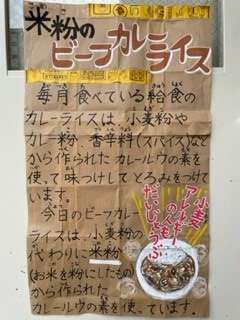 米粉の
ビーフカレー
ライス
毎月食べている給食の
カレーライスは、小麦粉や
カレー粉、香辛料(スパイス)など
から作られたカレールウの素を
使って味つけしてとろみをつけて
います。
今日のビーフカレー
ライスは、小麦粉の
代わりに米粉
(お米を粉にしたもの)
から作られた
カレールウの素を使っています。
小麦
アレルギー
の人も
だいじょうぶ